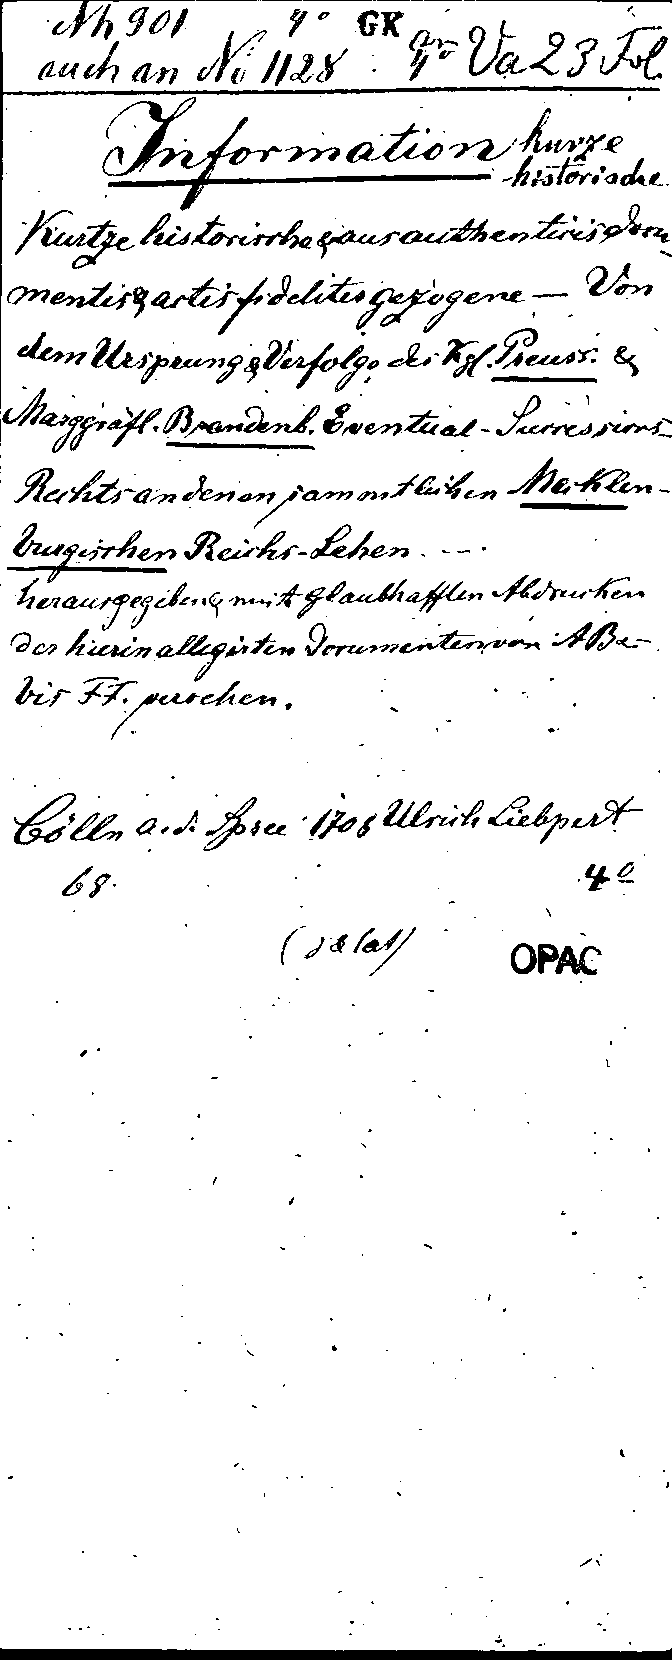 Nh 901 4° GK
auch an Ni 1128 . 4° Va 23 Fol.
Information kurze
historische
Kurtze historische & aus authenticis docu-
mentis & actis fideliter gezogene — Von
dem Ursprung & Verfolg des Kgl. Preuss. &
Marggräfl. Brandenb. Eventual-Successions-
Rechts an denen sammtlichen Mecklen-
burgischen Reichs-Lehen. --.
herausgegeben & mit glaubhafften Abdrucken
der hierin allegirten Documenten von A B &-
bis FF. versehen.
Cölln a. d. Spree 1708 Ulrich Liebpert
68. 4°
(d & lat)
OPAC